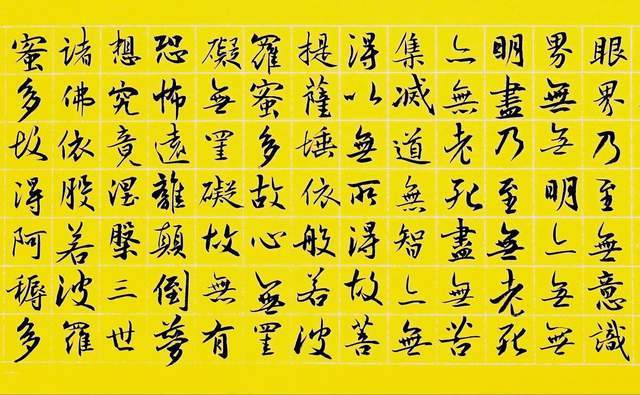 眼界乃至無意識
界無無明亦無無
明盡乃至無老死
亦無老死盡無苦
集滅道無智亦無
得以無所得故菩
提薩埵依般若波
羅蜜多故心無罣
礙無罣礙故無有
恐怖遠離顛倒夢
想究竟涅槃三世
諸佛依般若波羅
蜜多故得阿耨多